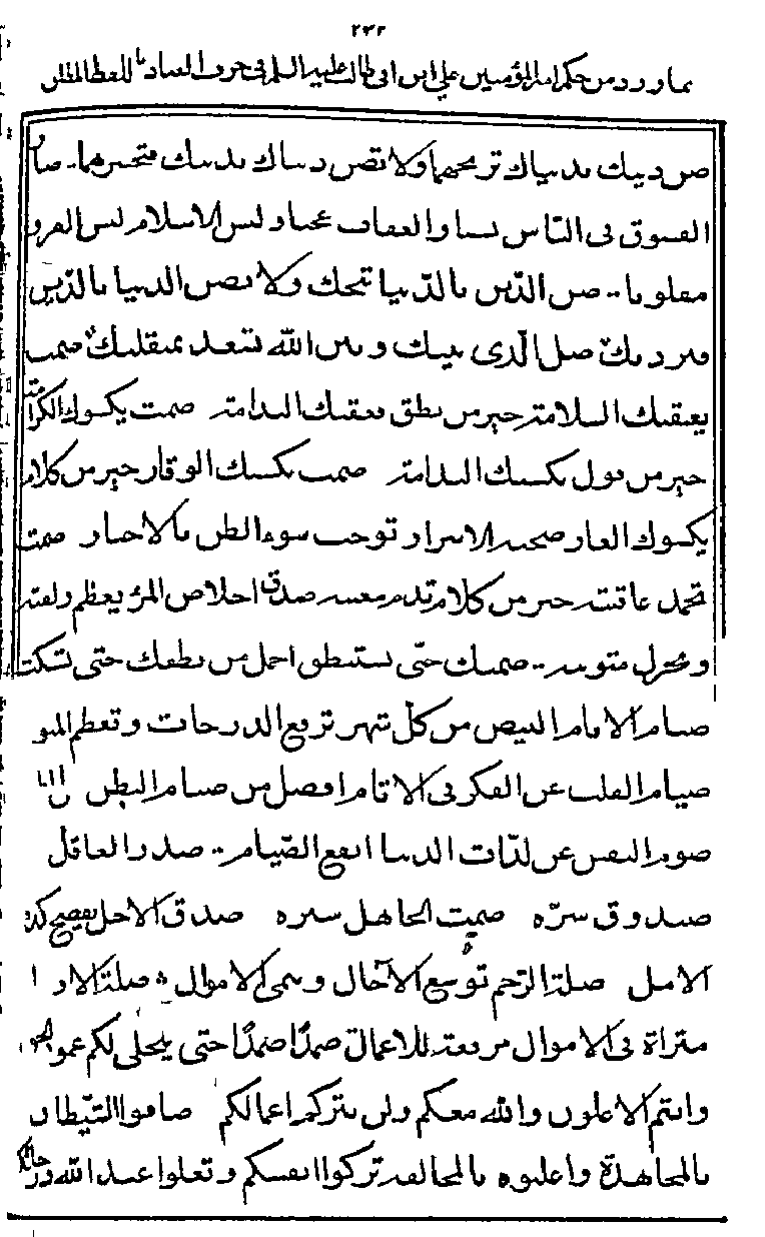 ٢٤٢
مما ورد من حكم امير المؤمنين علي ابن ابي طالب عليه السلم في حرف الصاد باللفظ المطلق
صن دينك بدنياك تربحهما ولا تصن دنياك بدينك فتخسرهما صار
الفسوق في النّاس نسبا والعفاف عجبا ولبس الاسلام لبس الفرو
مقلوبا صن الدّين بالدّنيا تنجك ولا تصن الدنيا بالدّين
فترديك صل الّذي بينك وبين الله تسعد بمنقلبك صمت
يعقبك السلامة خير من نطق يعقبك الندامة صمت يكسوك الكرامة
خير من قول يكسبك الندامة صمت يكسبك الوقار خير من كلام
يكسوك العار صحبة الاشرار توجب سوء الظن بالاخيار صمت
تحمد عاقبته خير من كلام تذم مغبته صدق اخلاص المرء يعظم زلفته
ويجزل مثوبته صمتك حتّى تستنطق اجمل من نطقك حتى تسكت
صيام الايام البيض من كلّ شهر ترفع الدرجات وتعظم المثو
صيام القلب عن الفكر في الاثام افضل من صيام البطن عن
صوم النفس عن لذّات الدنيا انفع الصّيام صدر العاقل
صندوق سرّه صمت الجاهل ستره صدق الاجل يفضح كذب
الامل صلة الرّحم توسع الآجال وتنمي الاموال صلة الار
مثراة في الاموال مرفعة للاعمال صمدًا صمدًا حتى ينجلي لكم عمود الحق
وانتم الاعلون والله معكم ولن يتركم اعمالكم صافوا الشّيطان
بالمجاهدة واغلبوه بالمخالفة تزكوا انفسكم وتعلوا عند الله درجاتكم